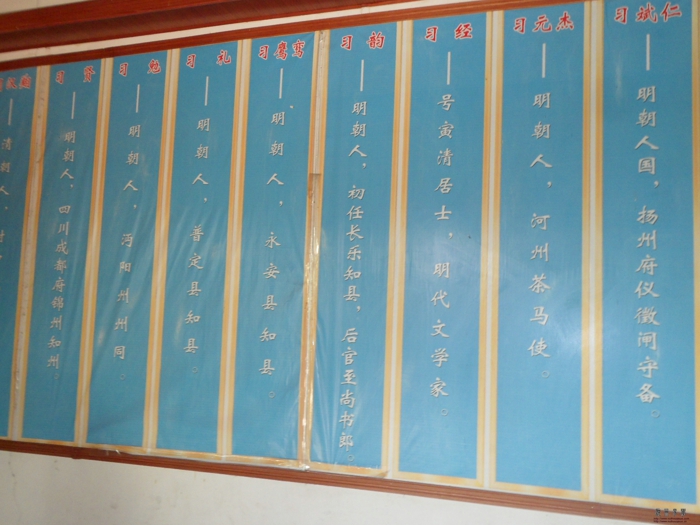 习斌仁
——明朝人国，扬州府仪徵闸守备。
习元杰
——明朝人，河州茶马使。
习经
——号寅清居士，明代文学家。
习韵
——明朝人，初任长乐知县，后官至尚书郎。
习鹰鸾
——明朝人，永安县知县。
习礼
——明朝人，善定县知县。
习勉
——明朝人，沔阳州州同。
习贤
——明朝人，四川成都府锦州知州。
清朝人，